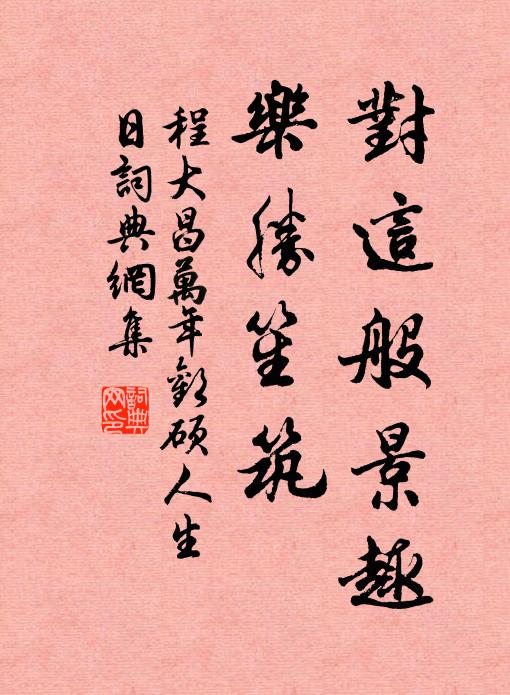 對這般景趣
樂勝笙筑
程大昌萬年歡碩人生
日詞典網集
詞典網印